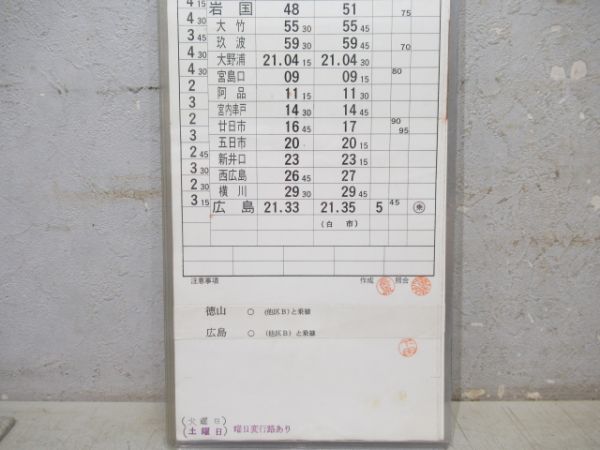 4 15 岩国 48 51 75
4 30 大竹 55 30 55 45
3 45 玖波 59 30 59 45 70
4 30 大野浦 21.04 15 21.04 30
4 30 宮島口 09 09 15 80
2 阿品 11 15 11 30
3 宮内串戸 14 30 14 45
2 廿日市 16 45 17 90
3 五日市 20 20 15 95
2 45 新井口 23 23 15
3 30 西広島 26 45 27
2 30 横川 29 30 29 45
3 15 広島 21.33 21.35 5 45
(白市)
注意事項 作成 照合
徳山 ○ (他区B)と乗継
広島 ○ (他区B)と乗継
(火曜日)
(土曜日) 曜日変行路あり